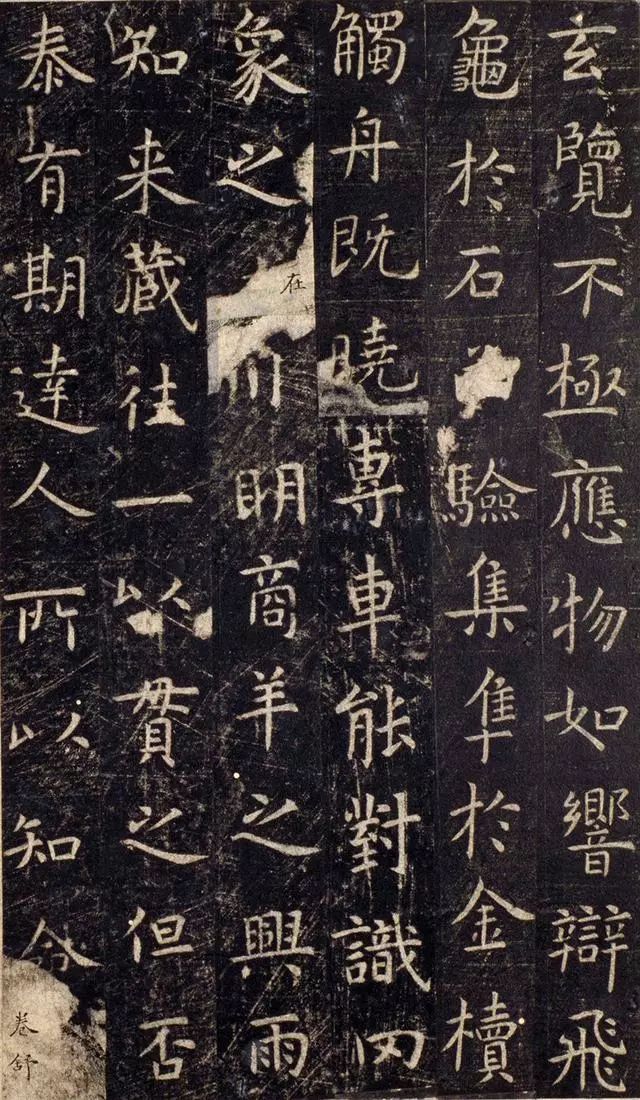 玄覽不極應物如響辯飛
龜於石驗集隼於金櫝
觸舟既曉專車能對識罔
象之在川明商羊之興雨
知来藏往一以貫之但否
泰有期達人所以知命卷舒